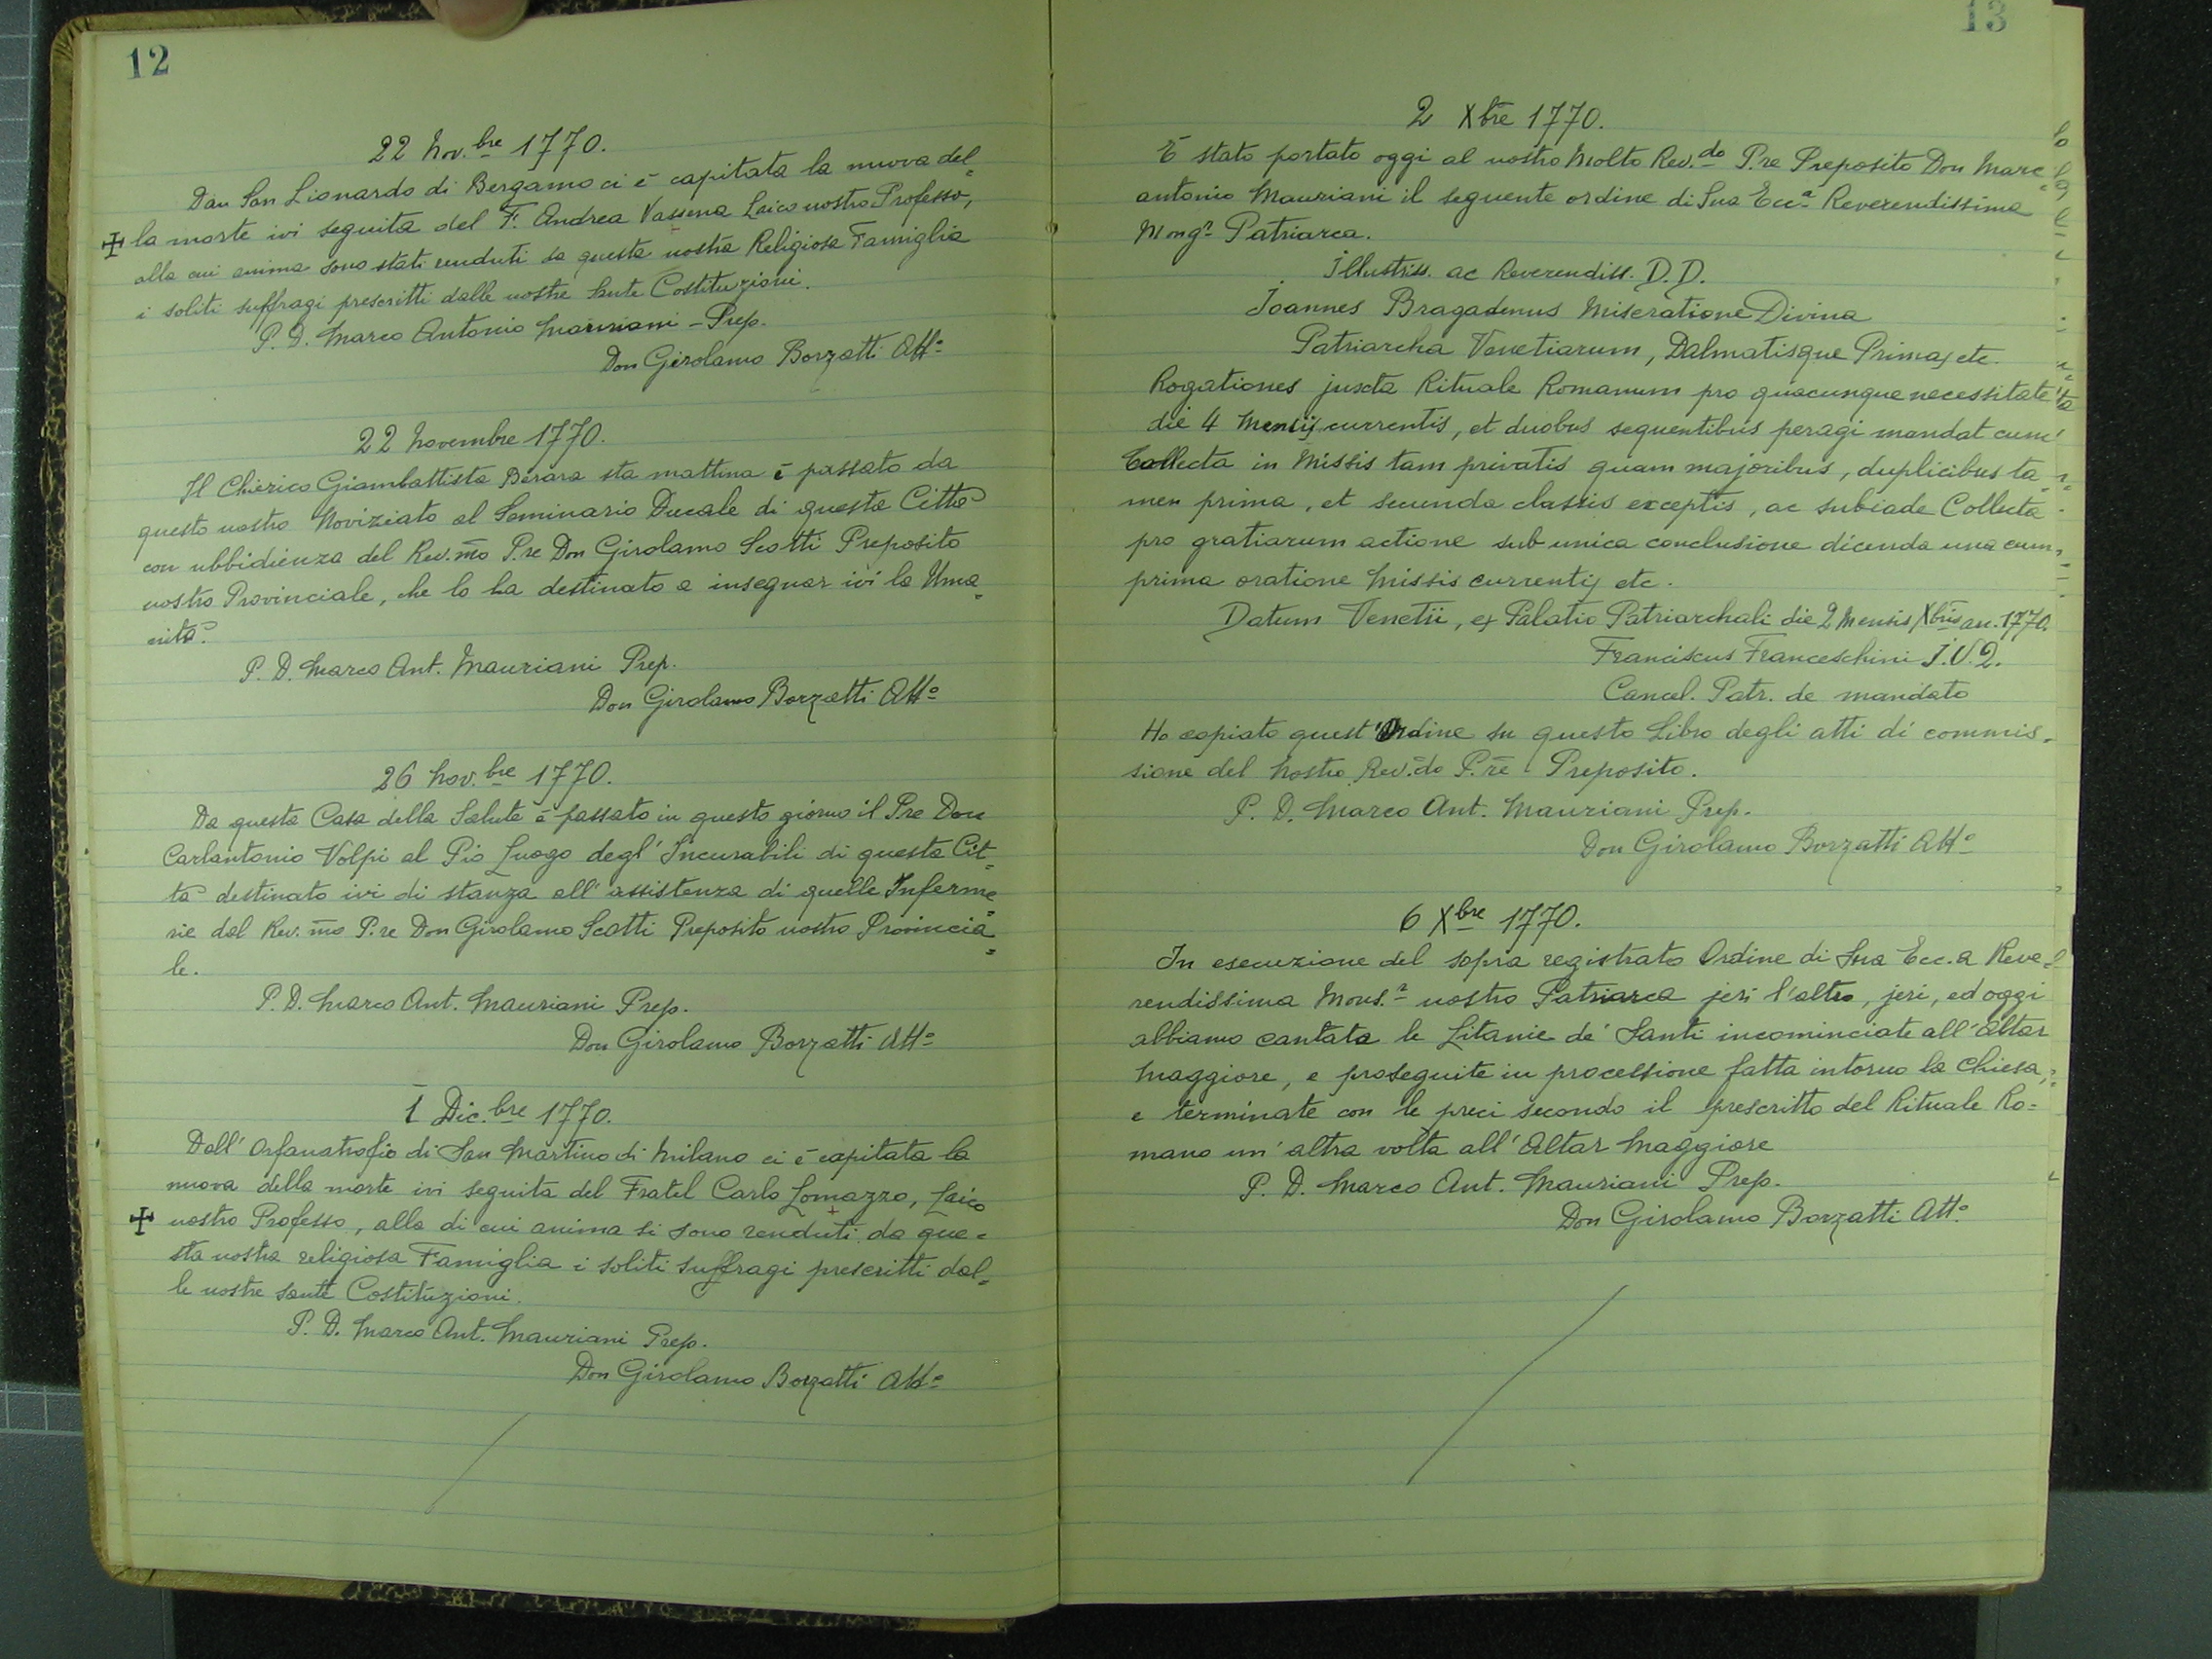 12
22 Nov.bre 1770.
Dau San Lionardo di Bergamo ci è capitata la nuova del=
la morte ivi seguita del F. Andrea Vassena Laico nostro Professo,
alla cui anima sono stati renduti da questa nostra Religiosa Famiglia
i soliti suffragi prescritti dalle nostre Sante Costituzioni.
P. D. Marco Antonio Mauriani - Prep.
Don Girolamo Borzatti Att.o
22 Novembre 1770.
Il Chierico Giambattista Berara sta mattina è passato da
questo nostro Noviziato al Seminario Ducale di questa Città
con ubbidienza del Rev.mo P.re Don Girolamo Scotti Preposito
nostro Provinciale, che lo ha destinato a insegnar ivi la Uma=
nità.
P. D. Marco Ant. Mauriani Prep.
Don Girolamo Borzatti Att.o
26 Nov.bre 1770.
Da questa Casa della Salute è passato in questo giorno il Pre Don
Carlantonio Volpi al Pio Luogo degl' Incurabili di questa Cit=
tà destinato ivi di stanza all' assistenza di quelle Inferme=
rie dal Rev.mo P.re Don Girolamo Scotti Preposito nostro Provincia=
le.
P. D. Marco Ant. Mauriani Prep.
Don Girolamo Borzatti Att.o
1 Dic.bre 1770.
Dall' Orfanatrofio di San Martino di Milano ci è capitata la
nuova della morte ivi seguita del Fratel Carlo Lomazzo, Laico
nostro Professo, alla di cui anima si sono renduti da que=
sta nostra religiosa Famiglia i soliti suffragi prescritti dal=
le nostre sante Costituzioni.
P. D. Marco Ant. Mauriani Prep.
Don Girolamo Borzatti Att.o
13
2 Xbre 1770.
È stato portato oggi al nostro Molto Rev.do P.re Preposito Don Marc=
antonio Mauriani il seguente ordine di Sua Ecc.a Reverendissima
Mong.r Patriarca.
Illustriss. ac Reverendiss. D. D.
Joannes Bragadenus Miseratione Divina
Patriarcha Venetiarum, Dalmatisque Primas etc.
Rogationes juxta Rituale Romanum pro quacunque necessitate
die 4 Mensis currentis, et duobus sequentibus peragi mandat cum
Collecta in Missis tam privatis quam majoribus, duplicibus ta=
men prima, et secunda classis exceptis, ac subiade Collecta
pro gratiarum actione sub unica conclusione dicenda una cum
prima oratione Missis currentis etc.
Datum Venetii, ex Palatio Patriarchali die 2 Mensis Xbris an. 1770.
Franciscus Franceschini J. V. D.
Cancel. Patr. de mandato
Ho copiato quest' Ordine su questo Libro degli atti di commis=
sione del Nostro Rev.do P.re Preposito.
P. D. Marco Ant. Mauriani Prep.
Don Girolamo Borzatti Att.o
6 Xbre 1770.
In esecuzione del sopra registrato Ordine di Sua Ecc.a Reve=
rendissima Mons.r nostro Patriarca jeri l'altro, jeri, ed oggi
abbiamo cantata le Litanie de' Santi incominciate all' Altar
Maggiore, e proseguite in processione fatta intorno la Chiesa,
e terminate con le preci secondo il prescritto del Rituale Ro=
mano un' altra volta all' Altar Maggiore
P. D. Marco Ant. Mauriani Prep.
Don Girolamo Borzatti Att.o